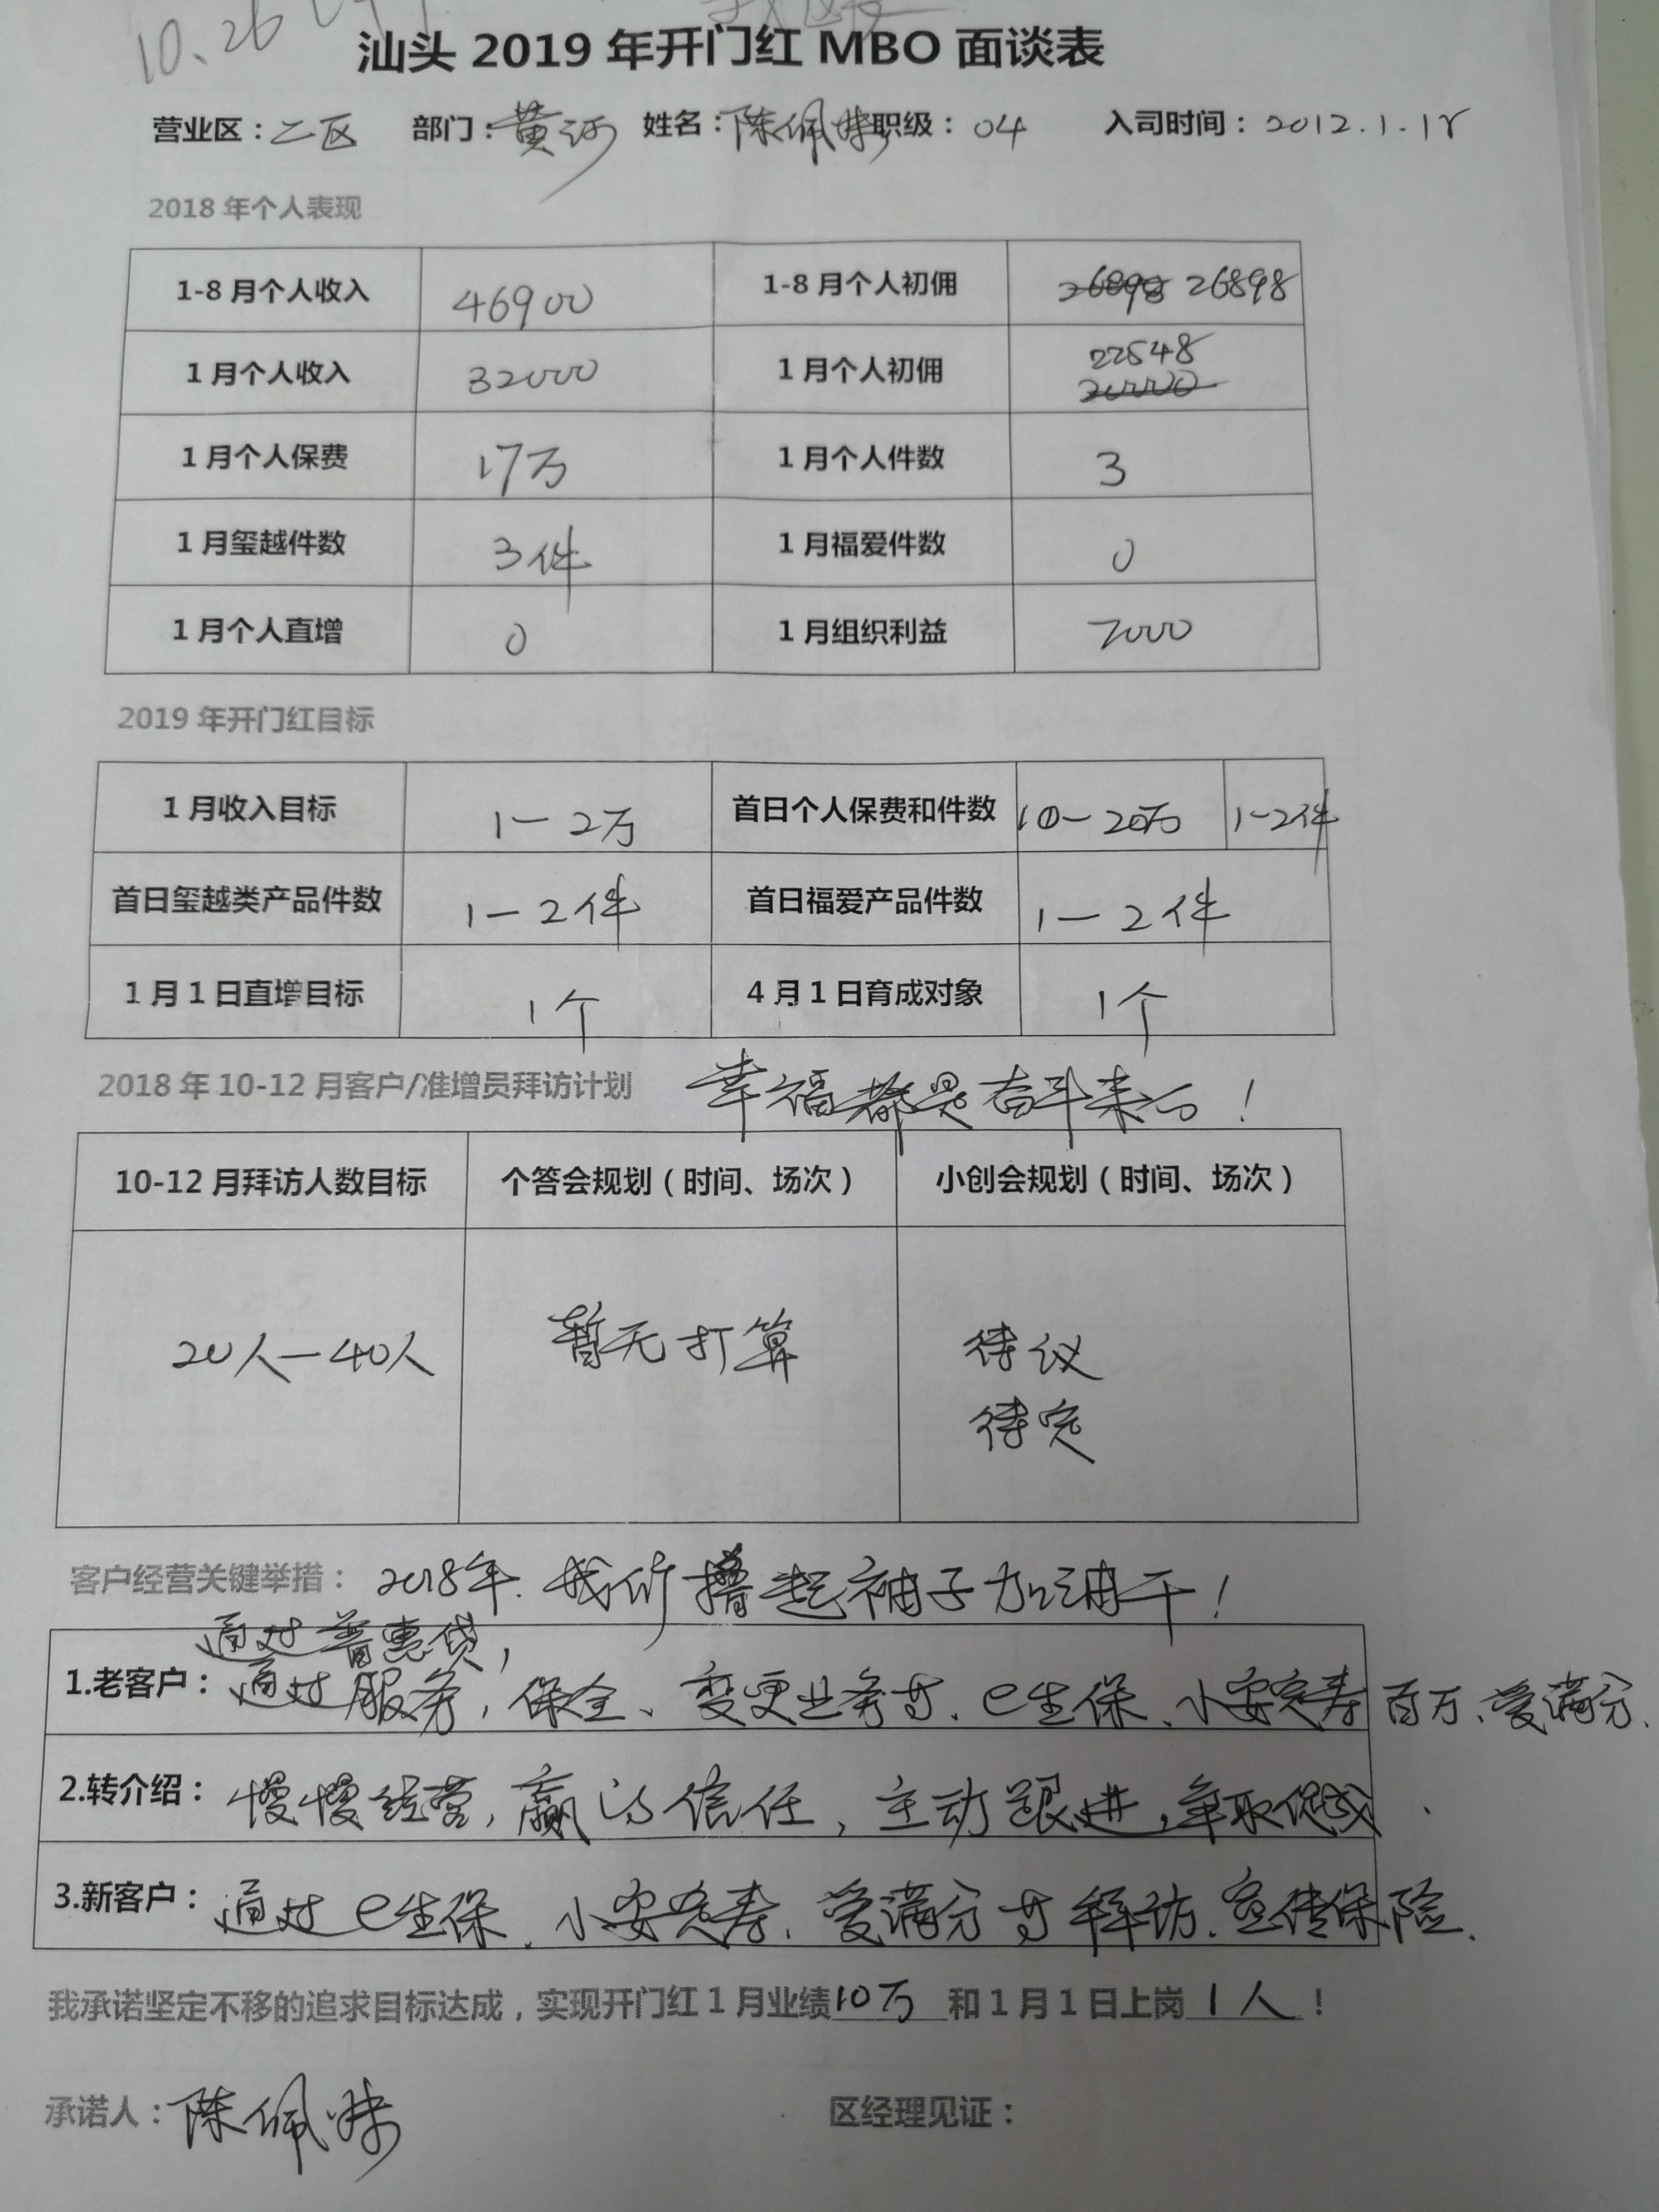 10.26
汕头 2019 年开门红 MBO 面谈表
营业区：二区 部门：黄河 姓名：陈佩 职级：04 入司时间：2012.1.18
2018 年个人表现
1-8 月个人收入 46900 1-8 月个人初佣 26898 26898
1 月个人收入 32000 1 月个人初佣 22548 20000
1 月个人保费 17万 1 月个人件数 3
1 月玺越件数 3件 1 月福爱件数 0
1 月个人直增 0 1 月组织利益 7000
2019 年开门红目标
1 月收入目标 1－2万 首日个人保费和件数 10－20万 1-2件
首日玺越类产品件数 1－2件 首日福爱产品件数 1－2件
1 月 1 日直增目标 1个 4 月 1 日育成对象 1个
2018 年 10-12 月客户/准增员拜访计划 幸福都是奋斗来的！
10-12 月拜访人数目标 个答会规划（时间、场次） 小创会规划（时间、场次）
20人－40人 暂无打算 待议
待定
客户经营关键举措：2018年.我们撸起袖子加油干！
通过普惠贷，
1.老客户：通过服务，保全、变更业务等、e生保、小安定寿 百万、爱满分.
2.转介绍：慢慢经营，赢得信任，主动跟进，争取促成.
3.新客户：通过e生保、小安定寿、爱满分等拜访.宣传保险.
我承诺坚定不移的追求目标达成，实现开门红 1 月业绩10万 和 1 月 1 日上岗 1人！
承诺人：陈佩 区经理见证：